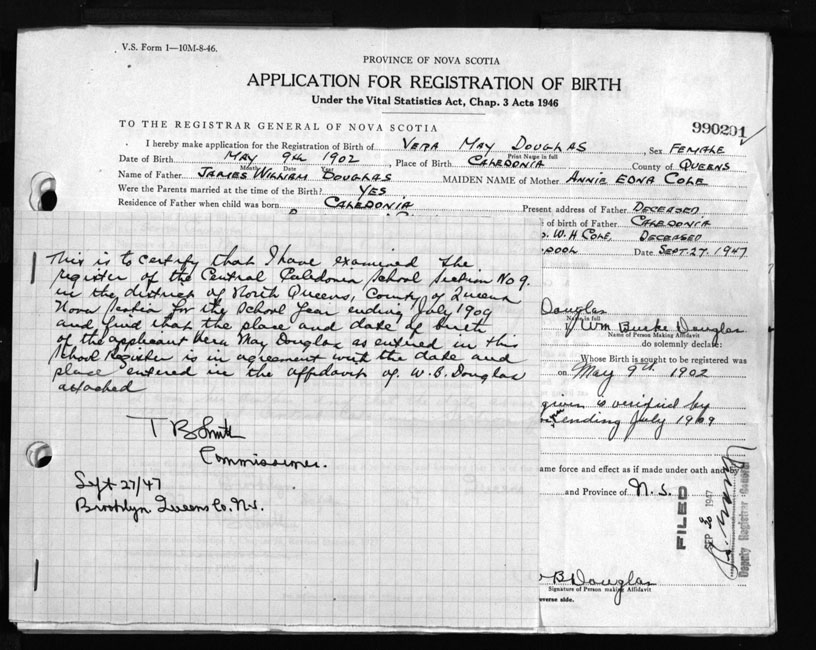 V.S. Form 1—10M-8-46.
PROVINCE OF NOVA SCOTIA
APPLICATION FOR REGISTRATION OF BIRTH
Under the Vital Statistics Act, Chap. 3 Acts 1946
990201
TO THE REGISTRAR GENERAL OF NOVA SCOTIA
I hereby make application for the Registration of Birth of VERA MAY DOUGLAS, Sex FEMALE
Print Name in full
Date of Birth MAY 9TH 1902, Place of Birth CALEDONIA County of QUEENS
Month Date Year
Name of Father JAMES WILLIAM DOUGLAS MAIDEN NAME of Mother ANNIE EDNA COLE
Were the Parents married at the time of the Birth? YES
Residence of Father when child was born CALEDONIA Present address of Father DECEASED
of birth of Father CALEDONIA
W. H COLE, DECEASED
POOL Date SEPT. 27. 1947
This is to certify that I have examined the
register of the Central Caledonia School Section No 9.
in the district of North Queens, County of Queens
Nova Scotia for the School Year ending July 1909
and find that the place and date of birth
of the applicant Vera May Douglas as entered in this
School Register is in agreement with the date and
place entered in the affidavit of W. B. Douglas
attached
T B Smith
Commissioner.
Sept 27/47
Brooklyn Queens Co. N.S.
Douglas
Name in full
Wm Burke Douglas
Name of Person Making Affidavit
do solemnly declare:
Whose Birth is sought to be registered was
on May 9th 1902
given is verified by
ending July 1909
ame force and effect as if made under oath and by
and Province of N. S.
FILED
1947
Deputy Registrar General
B Douglas
Signature of Person making Affidavit
everse side.